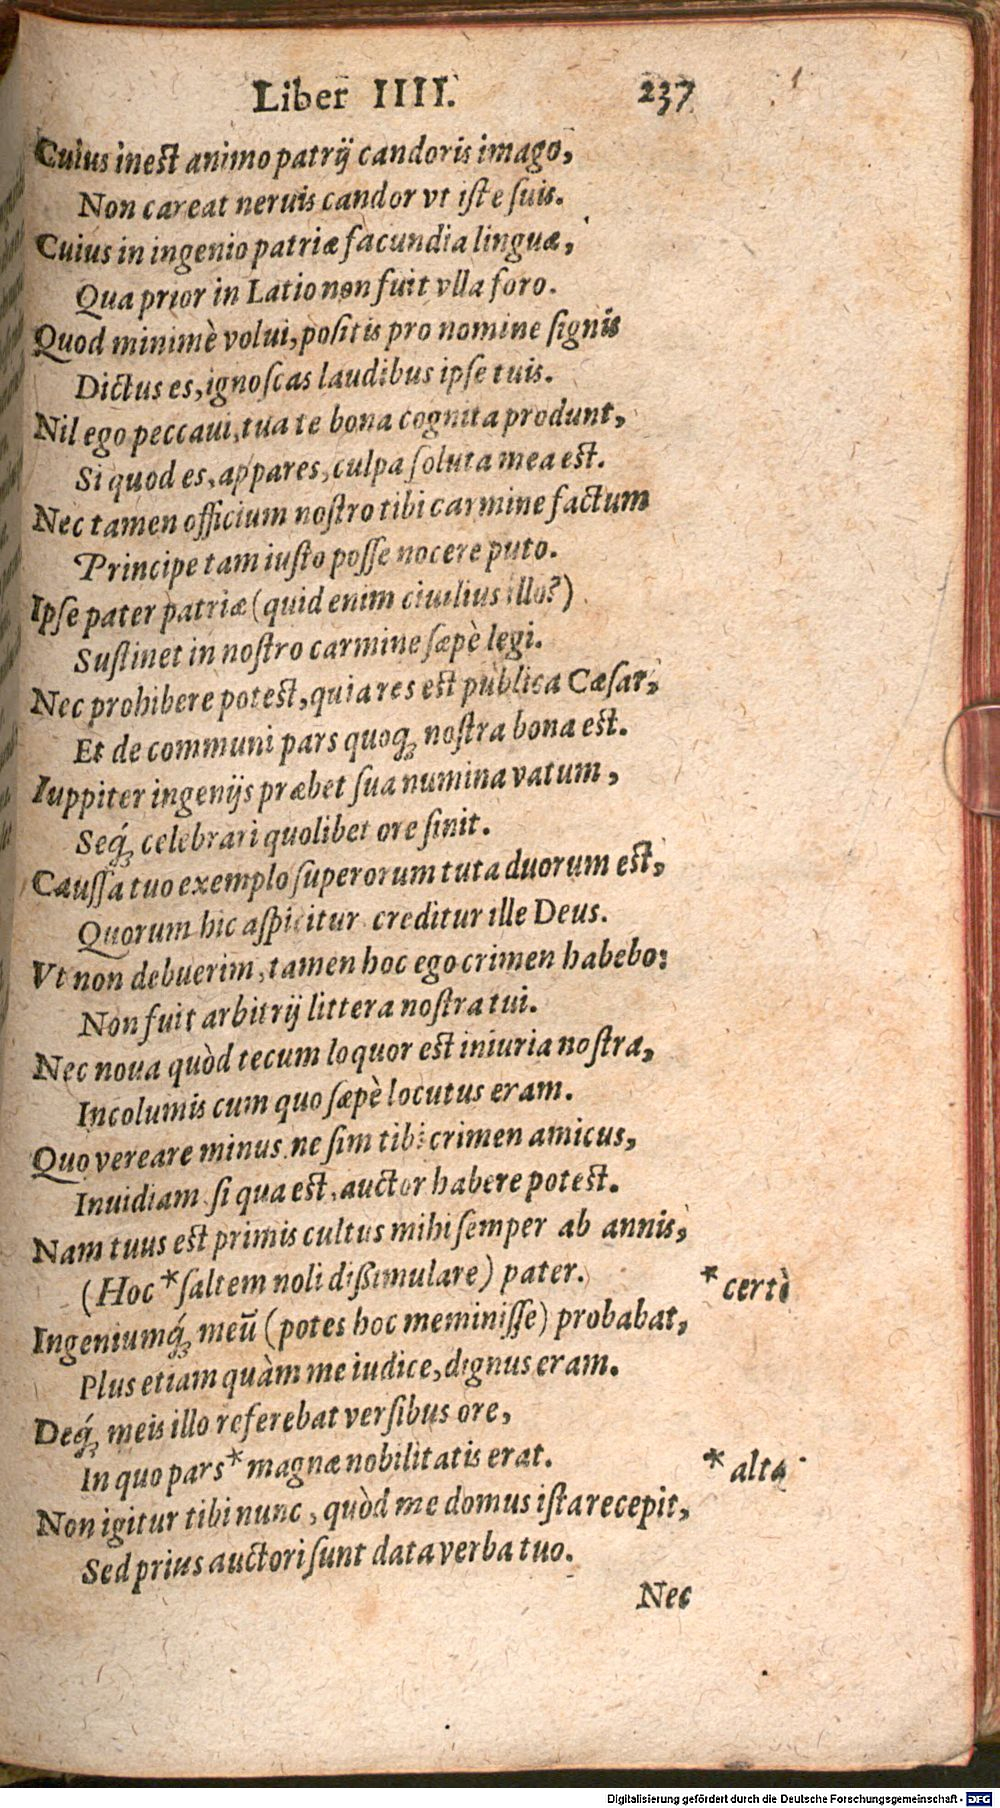 Liber IIII. 237
Cuius inest animo patrij candoris imago,
Non careat neruis candor vt iste suis.
Cuius in ingenio patriæ facundia linguæ,
Qua prior in Latio non fuit vlla foro.
Quod minimè volui, positis pro nomine signis
Dictus es, ignoscas laudibus ipse tuis.
Nil ego peccaui, tua te bona cognita produnt,
Si quod es, appares, culpa soluta mea est.
Nec tamen officium nostro tibi carmine factum
Principe tam iusto posse nocere puto.
Ipse pater patriæ (quid enim ciuilius illo?)
Sustinet in nostro carmine sæpè legi.
Nec prohibere potest, quia res est publica Cæsar,
Et de communi pars quoq; nostra bona est.
Iuppiter ingenijs præbet sua numina vatum,
Seq́; celebrari quolibet ore sinit.
Caussa tuo exemplo superorum tuta duorum est,
Quorum hic aspicitur creditur ille Deus.
Vt non debuerim, tamen hoc ego crimen habebo:
Non fuit arbitrij littera nostra tui.
Nec noua quòd tecum loquor est iniuria nostra,
Incolumis cum quo sæpè locutus eram.
Quo vereare minus ne sim tibi crimen amicus,
Inuidiam si qua est, auctor habere potest.
Nam tuus est primis cultus mihi semper ab annis,
(Hoc *saltem noli dißimulare) pater. *certè
Ingeniumq́; meū (potes hoc meminisse) probabat,
Plus etiam quàm me iudice, dignus eram.
Deq́; meis illo referebat versibus ore,
In quo pars *magnæ nobilitatis erat. *alta
Non igitur tibi nunc, quòd me domus ista recepit,
Sed prius auctori sunt data verba tuo.
Nec
Digitalisierung gefördert durch die Deutsche Forschungsgemeinschaft - DFG